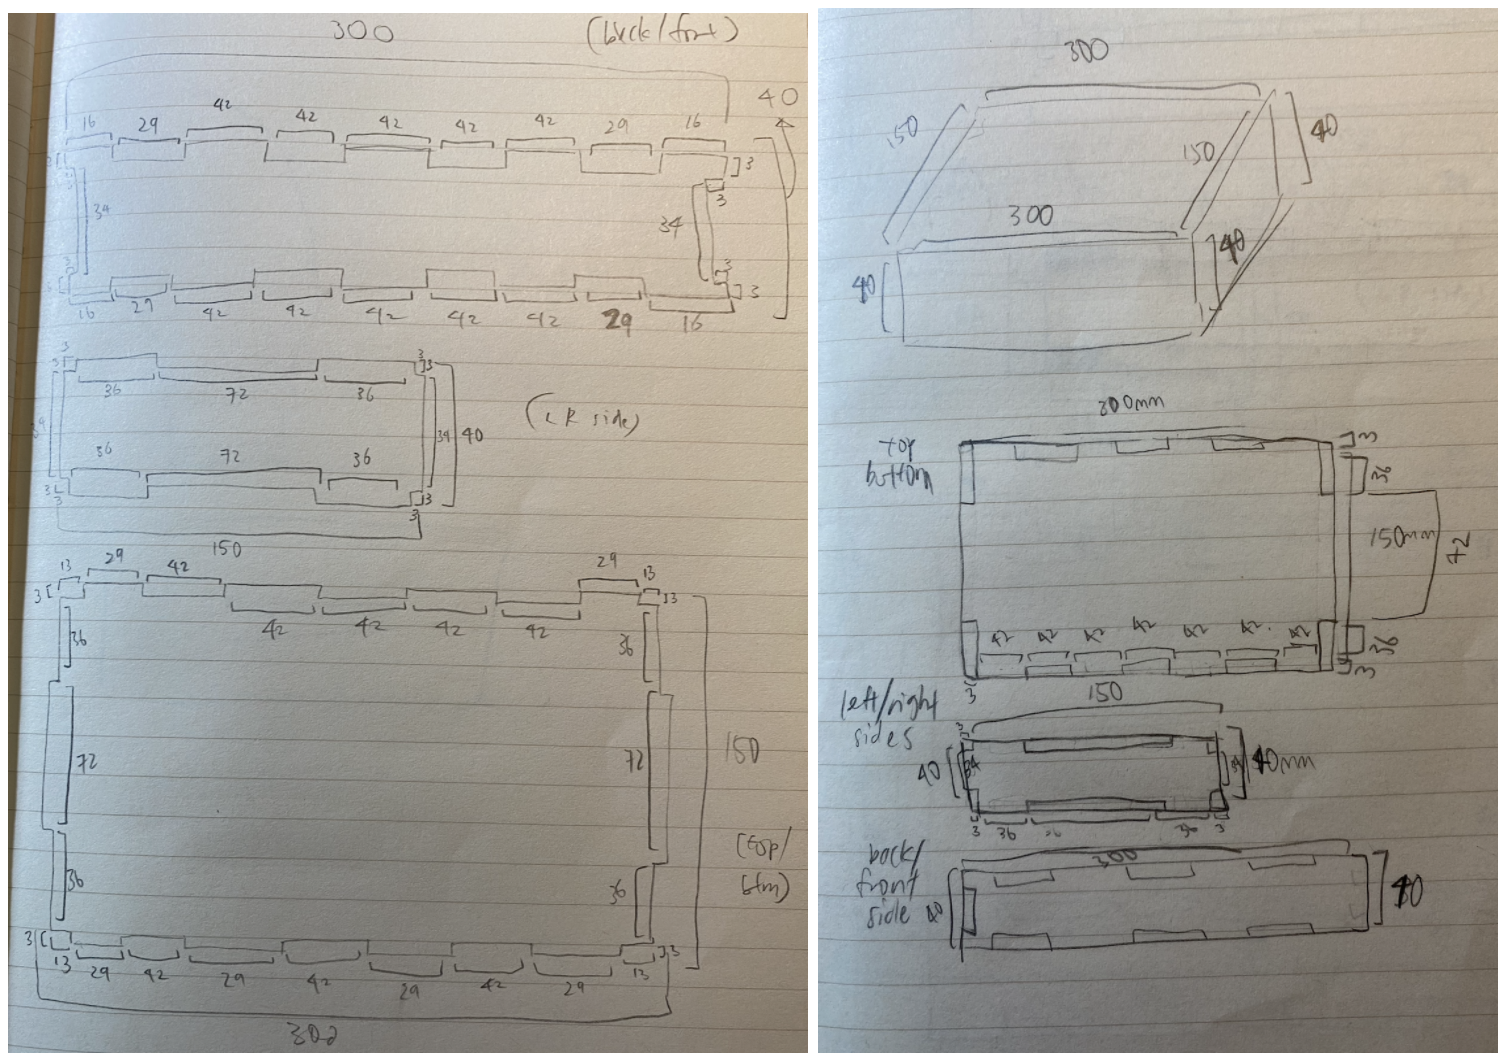 300
(back/front)
40
16 29 42 42 42 42 42 29 16
3 3
3
34 34
3 3
3 3
16 29 42 42 42 42 42 29 16
3 3
3 3
36 72 36
34 34 40
(LR side)
36 72 36
3 3
3 3
150
13 29 42 29 13
3 3
42 42 42 42
36 36
72 72 150
36 36
(top/
btm)
3 3
13 29 42 29 42 29 42 29 13
300
300
150 150 40
300
40 40
300mm
top
bottom
3
36
150mm
42
42 42 42 42 42 42 42
36
3
3
left/right
sides
150
3
40 34 34 40mm
3 36 36 36 3
back/
front
side
300
40 40